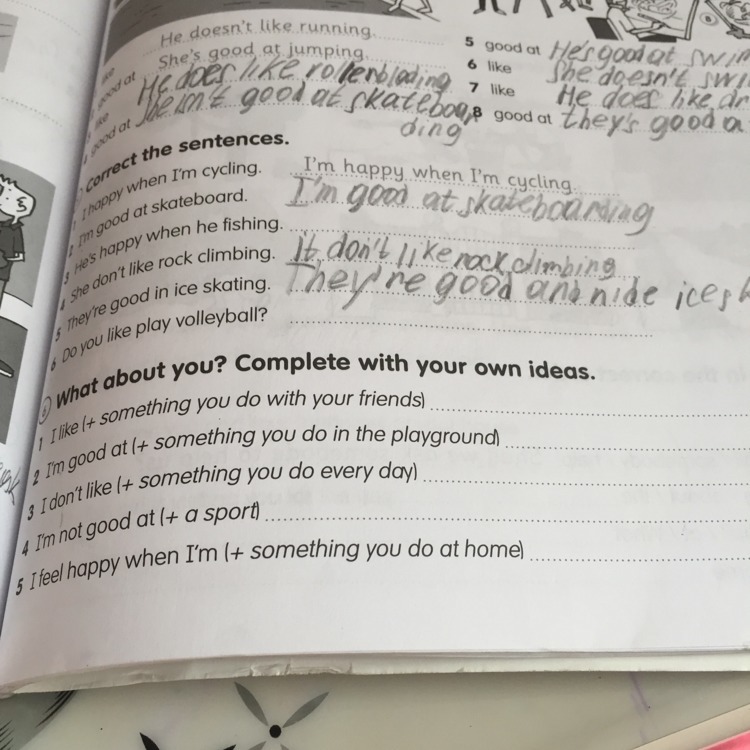 He doesn't like running.
She's good at jumping.
like
good at He does like rollerblading
like
good at She isn't good at skateboar
ding
5 good at He's good at swim
6 like She doesn't swi
7 like He does like dr
8 good at they's good a
Correct the sentences.
1 I happy when I'm cycling. I'm happy when I'm cycling.
2 I'm good at skateboard. I'm good at skateboarding
3 He's happy when he fishing.
4 She don't like rock climbing. It don't like rock climbing
5 They're good in ice skating. They're good and nide ices
6 Do you like play volleyball?
6 What about you? Complete with your own ideas.
1 I like (+ something you do with your friends)
2 I'm good at (+ something you do in the playground)
3 I don't like (+ something you do every day)
4 I'm not good at (+ a sport)
5 I feel happy when I'm (+ something you do at home)